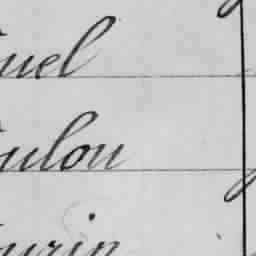 uel
ulou
urin